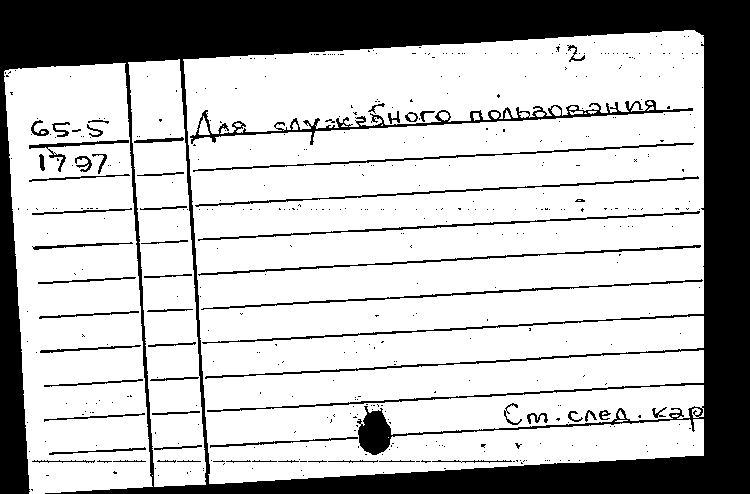 2
65-5 Для служебного пользования.
1797
См. след. кар